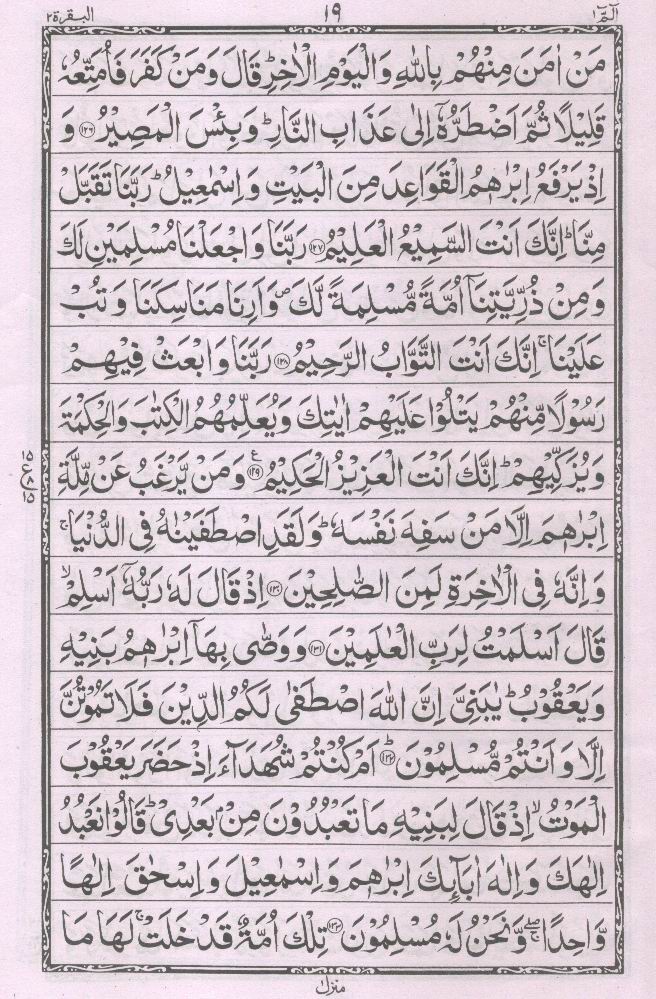 الٓمّٓ ١ ١٩ البقرة ٢
مَنْ اٰمَنَ مِنْهُمْ بِاللّٰهِ وَالْيَوْمِ الْاٰخِرِ ؕ قَالَ وَمَنْ كَفَرَ فَاُمَتِّعُهٗ
قَلِيْلًا ثُمَّ اَضْطَرُّهٗۤ اِلٰى عَذَابِ النَّارِ ؕ وَبِئْسَ الْمَصِيْرُ ﴿۱۲۶﴾ وَ
اِذْ يَرْفَعُ اِبْرٰهٖمُ الْقَوَاعِدَ مِنَ الْبَيْتِ وَاِسْمٰعِيْلُ ؕ رَبَّنَا تَقَبَّلْ
مِنَّا ؕ اِنَّكَ اَنْتَ السَّمِيْعُ الْعَلِيْمُ ﴿۱۲۷﴾ رَبَّنَا وَاجْعَلْنَا مُسْلِمَيْنِ لَكَ
وَمِنْ ذُرِّيَّتِنَاۤ اُمَّةً مُّسْلِمَةً لَّكَ ۪ وَاَرِنَا مَنَاسِكَنَا وَتُبْ
عَلَيْنَا ۚ اِنَّكَ اَنْتَ التَّوَّابُ الرَّحِيْمُ ﴿۱۲۸﴾ رَبَّنَا وَابْعَثْ فِيْهِمْ
رَسُوْلًا مِّنْهُمْ يَتْلُوْا عَلَيْهِمْ اٰيٰتِكَ وَيُعَلِّمُهُمُ الْكِتٰبَ وَالْحِكْمَةَ
وَيُزَكِّيْهِمْ ؕ اِنَّكَ اَنْتَ الْعَزِيْزُ الْحَكِيْمُ ﴿۱۲۹﴾ ع وَمَنْ يَّرْغَبُ عَنْ مِّلَّةِ
اِبْرٰهٖمَ اِلَّا مَنْ سَفِهَ نَفْسَهٗ ؕ وَلَقَدِ اصْطَفَيْنٰهُ فِى الدُّنْيَا ۚ
وَاِنَّهٗ فِى الْاٰخِرَةِ لَمِنَ الصّٰلِحِيْنَ ﴿۱۳۰﴾ اِذْ قَالَ لَهٗ رَبُّهٗۤ اَسْلِمْ ۙ
قَالَ اَسْلَمْتُ لِرَبِّ الْعٰلَمِيْنَ ﴿۱۳۱﴾ وَوَصّٰى بِهَاۤ اِبْرٰهٖمُ بَنِيْهِ
وَيَعْقُوْبُ ؕ يٰبَنِىَّ اِنَّ اللّٰهَ اصْطَفٰى لَكُمُ الدِّيْنَ فَلَا تَمُوْتُنَّ
اِلَّا وَاَنْتُمْ مُّسْلِمُوْنَ ﴿۱۳۲﴾ؕ اَمْ كُنْتُمْ شُهَدَآءَ اِذْ حَضَرَ يَعْقُوْبَ
الْمَوْتُ ۙ اِذْ قَالَ لِبَنِيْهِ مَا تَعْبُدُوْنَ مِنْۢ بَعْدِىْ ؕ قَالُوْا نَعْبُدُ
اِلٰهَكَ وَاِلٰهَ اٰبَآئِكَ اِبْرٰهٖمَ وَاِسْمٰعِيْلَ وَاِسْحٰقَ اِلٰهًا
وَّاحِدًا ۖۚ وَّنَحْنُ لَهٗ مُسْلِمُوْنَ ﴿۱۳۳﴾ تِلْكَ اُمَّةٌ قَدْ خَلَتْ ۚ لَهَا مَا
منزل